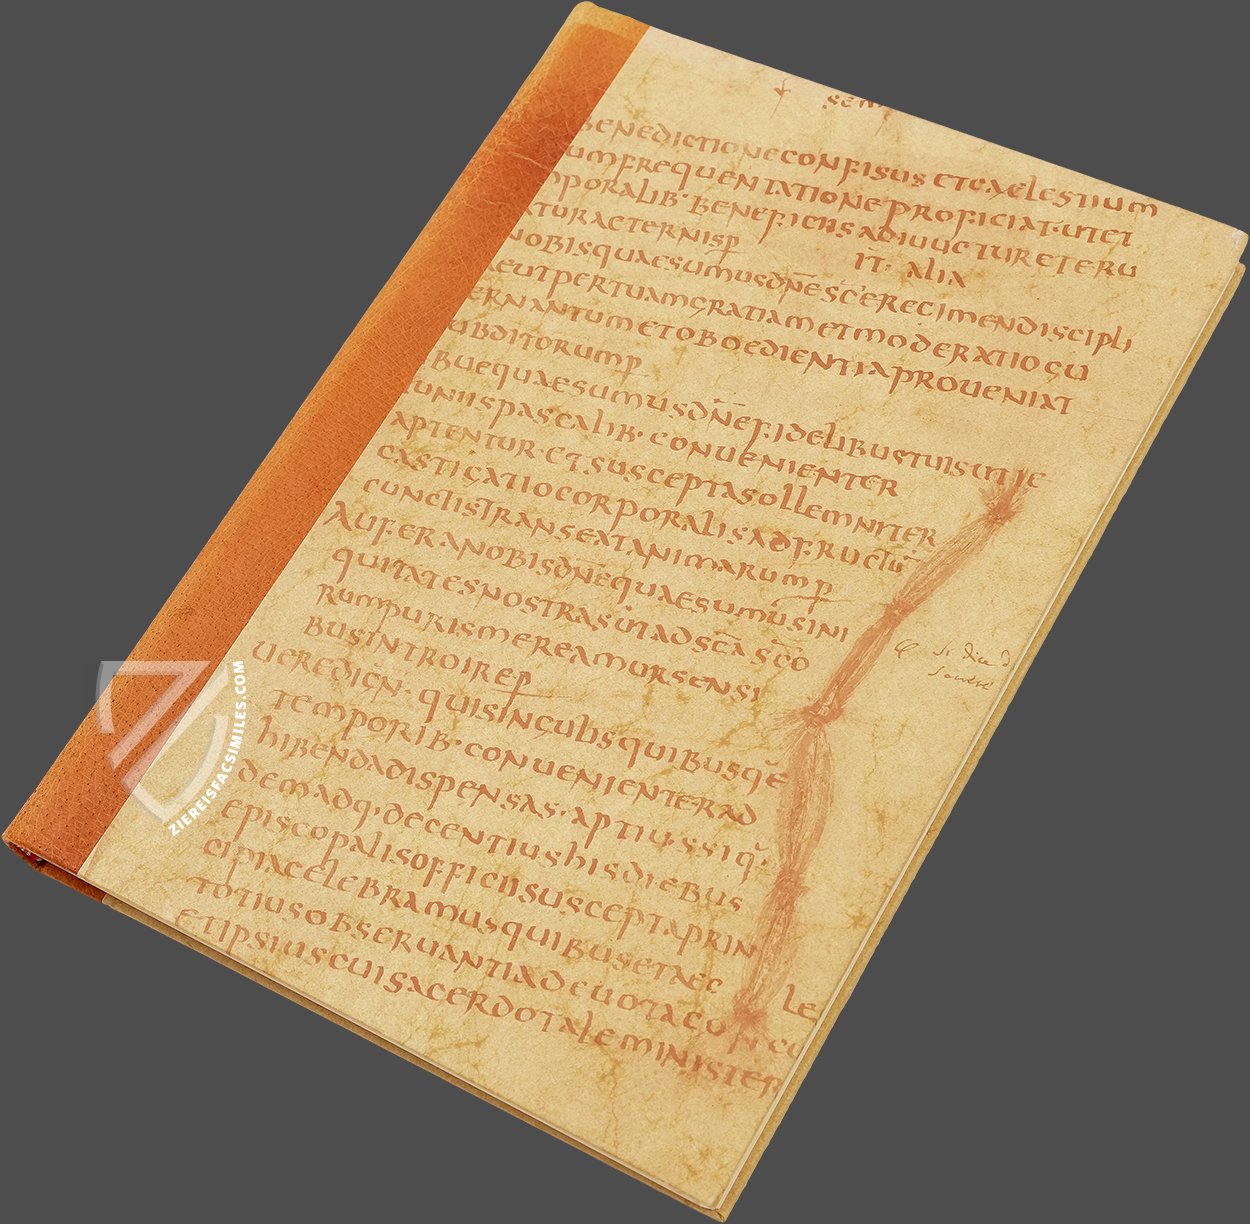 BENEDICTIONECONFISUSETCAELESTIUM
UMFREQUENTATIONEPROFICIAT·UTET
PORALIB·BENEFICIISADIUUETURETERU
ATURAETERNISP
IT· ALIA
NOBISQUAESUMUSDN̄ESC̄ERECIMENDISCIPLI
AEUTPERTUAMGRATIAMETMODERATIOGU
ERNANTUMETOBOEDIENTIAPROUENIAT
UBDITORUMP
BUEQUAESUMUSDN̄EFIDELIBUSTUISUTIE
IUNIISPASCALIB·CONUENIENTER
APTENTUR·ETSUSCEPTASOLLEMNITER
CASTIGATIOCORPORALISADFRUCTŪ
CUNCTISTRANSEATANIMARUMP
AUFERANOBISDN̄EQUAESUMUSINI
QUITATESNOSTRASUTADSC̄ASC̄O
RUMPURISMEREAMURSENSI
BUSINTROIREP
UEREDIGN·QUISINGULISQUIBUSQ·E
TEMPORIB·CONUENIENTERAD
HIBENDADISPENSAS·APTIUSSIQ·
DEMADQ·DECENTIUSHISDIEBUS
EPISCOPALISOFFICIISUSCEPTAPRIN
CIPIACELEBRAMUSQUIBUSETAEC LE
TOTIUSOBSERUANTIADEUOTACO
ETIPSIUSCUISACERDOTALEMINISTER
ZIEREISFACSIMILES.COM